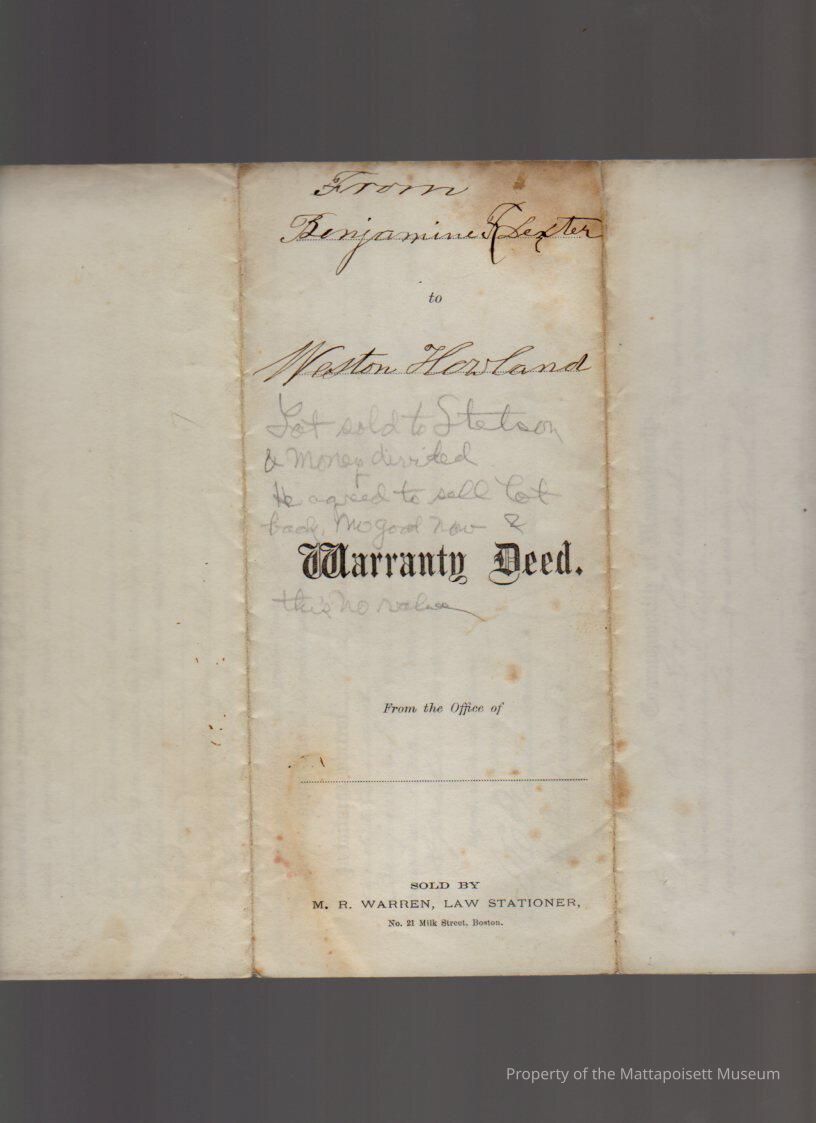 From
Benjamine F Dexter
to
Weston Howland
Lot sold to Stetson
& Money divided
He agreed to sell Lot
back, No good now &
Warranty Deed.
this no value
From the Office of
SOLD BY
M. R. WARREN, LAW STATIONER,
No. 21 Milk Street, Boston.
Property of the Mattapoisett Museum